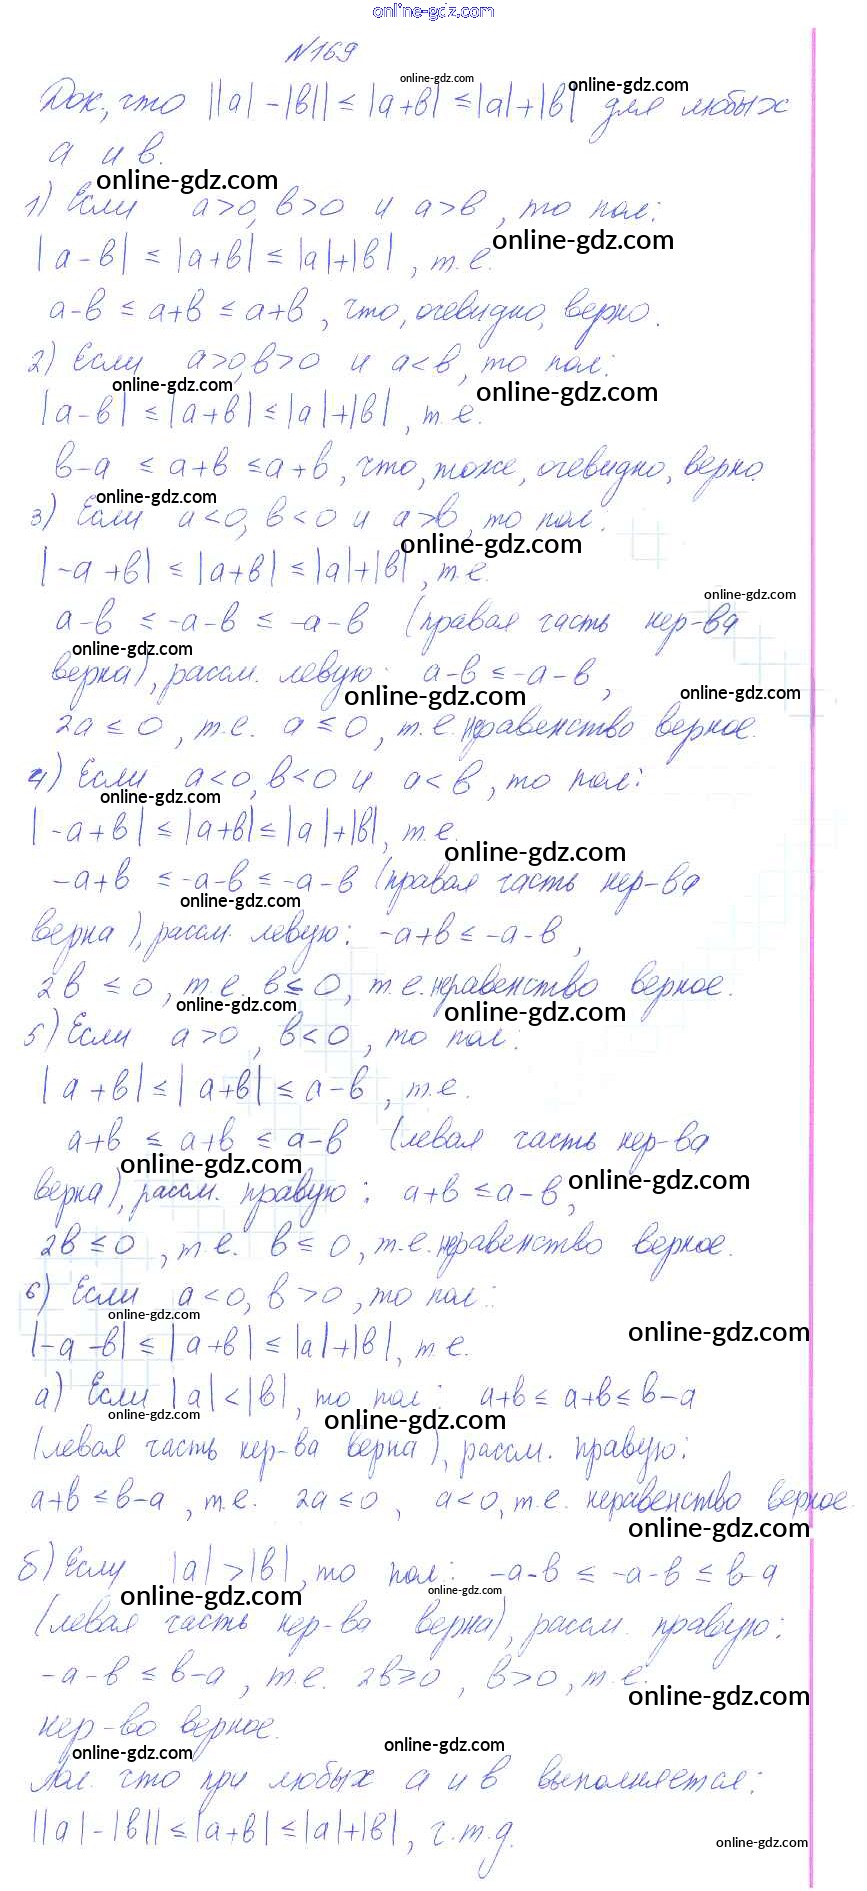 online-gdz.com
N169
online-gdz.com
Док, что ||a|-|в|| ≤ |a+в| ≤ |a|+|в| для любых
online-gdz.com
a и в.
online-gdz.com
1) Если a>0, в>0 и a>в, то пол:
online-gdz.com
|a-в| ≤ |a+в| ≤ |a|+|в|, т.е.
a-в ≤ a+в ≤ a+в, что, очевидно, верно.
2) Если a>0, в>0 и a<в, то пол:
online-gdz.com
online-gdz.com
|a-в| ≤ |a+в| ≤ |a|+|в|, т.е.
в-a ≤ a+в ≤ a+в, что, тоже, очевидно, верно.
online-gdz.com
3) Если a<0, в<0 и a>в, то пол.
online-gdz.com
|-a+в| ≤ |a+в| ≤ |a|+|в|, т.е.
online-gdz.com
a-в ≤ -a-в ≤ -a-в (правая часть нер-ва
online-gdz.com
верна), рассм. левую: a-в ≤ -a-в,
online-gdz.com
online-gdz.com
2a ≤ 0, т.е. a ≤ 0, т.е. неравенство верное.
4) Если a<0, в<0 и a<в, то пол:
online-gdz.com
|-a+в| ≤ |a+в| ≤ |a|+|в|, т.е.
online-gdz.com
-a+в ≤ -a-в ≤ -a-в (правая часть нер-ва
online-gdz.com
верна), рассм. левую: -a+в ≤ -a-в,
2в ≤ 0, т.е. в ≤ 0, т.е. неравенство верное.
online-gdz.com
online-gdz.com
5) Если a>0, в<0, то пол:
|a+в| ≤ |a+в| ≤ a-в, т.е.
a+в ≤ a+в ≤ a-в (левая часть нер-ва
online-gdz.com
online-gdz.com
верна), рассм. правую: a+в ≤ a-в,
2в ≤ 0, т.е. в ≤ 0, т.е. неравенство верное.
6) Если a<0, в>0, то пол:
online-gdz.com
online-gdz.com
|-a-в| ≤ |a+в| ≤ |a|+|в|, т.е.
а) Если |a|<|в|, то пол: a+в ≤ a+в ≤ в-a
online-gdz.com
online-gdz.com
(левая часть нер-ва верна), рассм. правую:
a+в ≤ в-a, т.е. 2a ≤ 0, a<0, т.е. неравенство верное.
online-gdz.com
б) Если |a|>|в|, то пол: -a-в ≤ -a-в ≤ в-a
online-gdz.com
online-gdz.com
(левая часть нер-ва верна), рассм. правую:
-a-в ≤ в-a, т.е. 2в≥0, в>0, т.е.
online-gdz.com
нер-во верное.
online-gdz.com
online-gdz.com
Пол. что при любых a и в выполняется:
||a|-|в|| ≤ |a+в| ≤ |a|+|в|, ч.т.д.
online-gdz.com